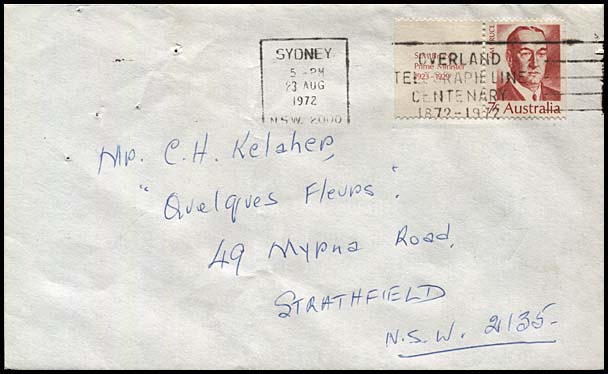 SYDNEY
5 - PM
23 AUG
1972
N.S.W. 2000
Prime Minister
1923-1929
BRUCE
7c Australia
OVERLAND
TELEGRAPH LINE
CENTENARY
1872-1972
Mr. C. H. Kelaher,
"Quelques Fleurs".
49 Myrna Road,
STRATHFIELD
N.S.W. 2135-